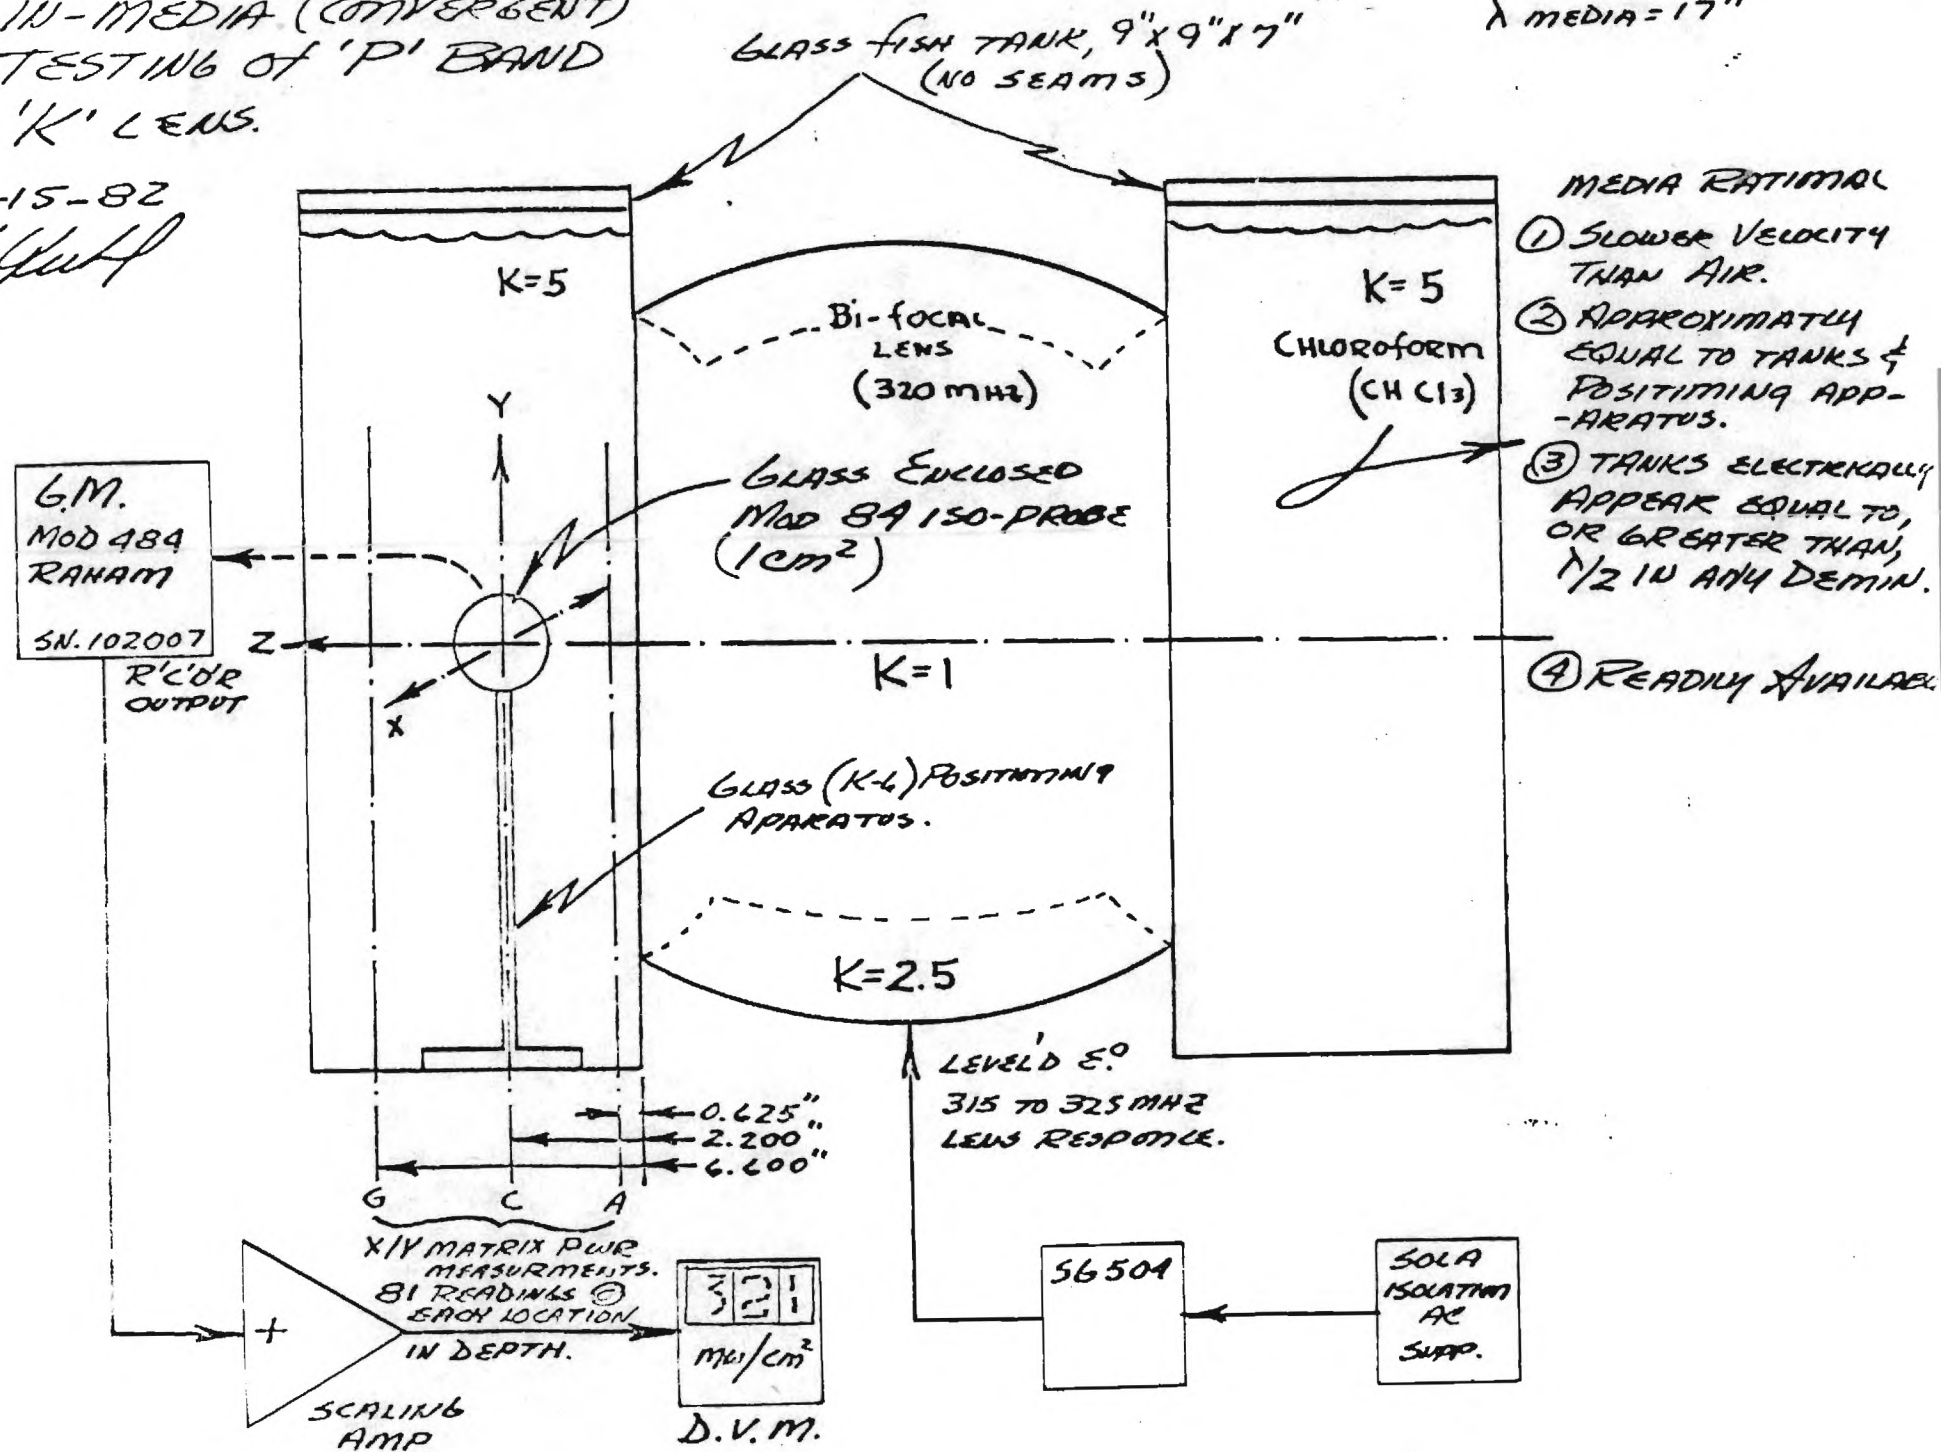 IN-MEDIA (CONVERGENT)
TESTING Of 'P' BAND
'K' LENS.
-15-82
GLASS fISH TANK, 9"X9"X7"
(NO SEAMS)
λ MEDIA = 17"
K=5
Bi-focal
LENS
(320 MHZ)
K=5
CHLOROfORM
(CHCl3)
MEDIA RATIMAL
① SLOWER VELOCITY
THAN AIR.
② APPROXIMATLY
EQUAL TO TANKS &
POSITIMING APP-
-ARATUS.
③ TANKS ELECTRICALLY
APPEAR EQUAL TO,
OR GREATER THAN,
λ/2 IN ANY DEMIN.
④ READILY AVAILABL
G.M.
MOD 484
RAHAM
SN. 102007
R'C'D'R
OUTPUT
Y
Z
X
GLASS ENCLOSED
MOD 84 ISO-PROBE
(1cm²)
K=1
GLASS (K-6) POSITIONING
APARATUS.
K=2.5
LEVEL'D E.º
315 TO 325 MHZ
LENS RESPONCE.
0.625"
2.200"
6.600"
G C A
X/Y MATRIX PWR
MEASURMENTS.
81 READINGS @
EACH LOCATION
IN DEPTH.
+
SCALING
AMP
321
mw/cm²
D.V.M.
SG 504
SOLA
ISOLATION
AC
SUPP.